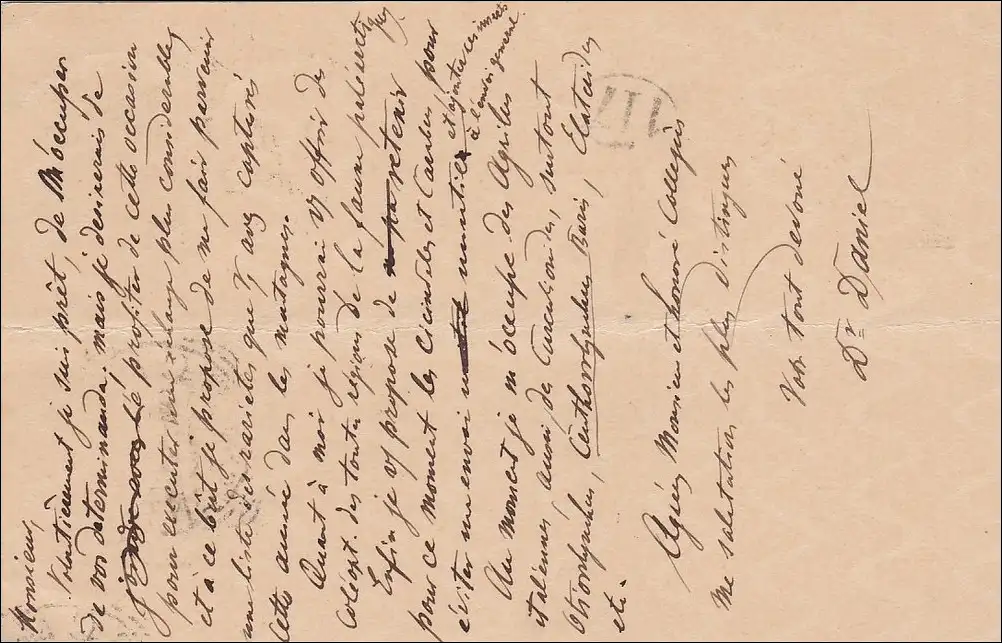 Monsieur,
Volontièrement je suis prêt, de m'occuper
de vos determinanda. mais je desirerais de
profiter de cette occasion
pour executer un echange plus considerable,
et à ce bût je propose de me fair parvenir
une liste des rarietés que vs avez capturés
cette année dans les montagnes.
Quant à moi je pourrai vs offrir des
coléopt. des toutes régions de la faune paléarct.
Enfin je vs propose de retenir
pour ce moment les Cicindeles et Carabes pour
éviter un envoi inutile et ajouter ces insects
à l'envoi generent
Au moment je m'occupe des Agrilus
italiennes aussi de Curculionides, surtout
Otiorrhynches, Ceuthorrhynchus, Baris, Elaterides
etc.
Agréez Monsieur et honoré Collegue
me salutations les plus distingues
Votr. tout devoué
Dr Daniel